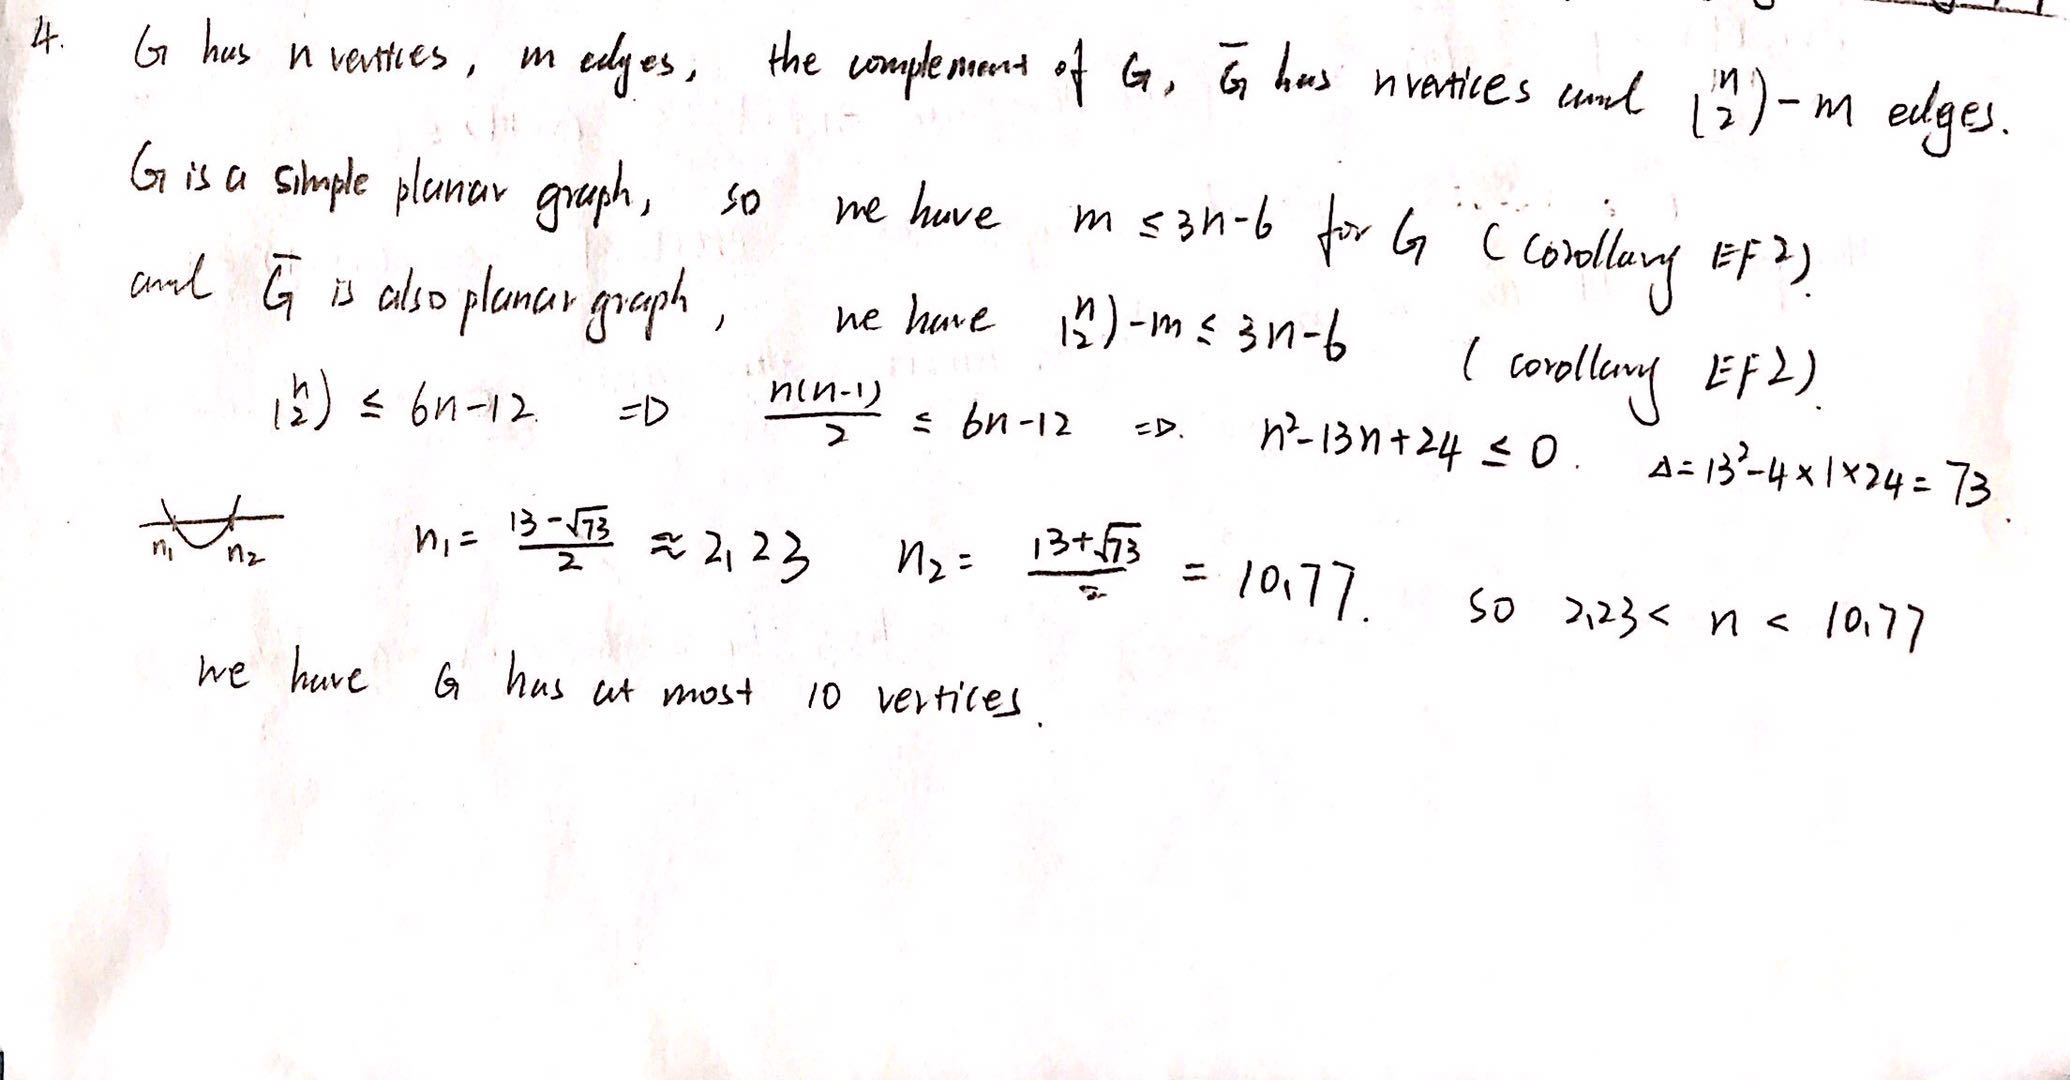 4. G has n vertices, m edges, the complement of G, G̅ has n vertices and (n 2) - m edges.
G is a simple planar graph, so we have m ≤ 3n-6 for G (Corollary EF2).
and G̅ is also planar graph, we have (n 2) - m ≤ 3n-6 (corollary EF2).
(n 2) ≤ 6n-12 => n(n-1)/2 ≤ 6n-12 => n²-13n+24 ≤ 0. Δ=13²-4×1×24=73.
n₁ n₂ n₁ = (13-√73)/2 ≈ 2,23 n₂ = (13+√73)/2 = 10,77. so 2,23 < n < 10,77
we have G has at most 10 vertices.